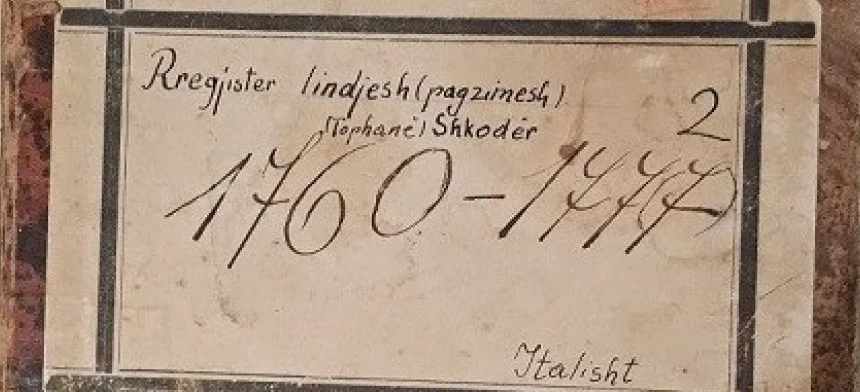 Rregjister lindjesh (pagzimesh)
(Tophanë) Shkodër
2
1760-1777
Italisht